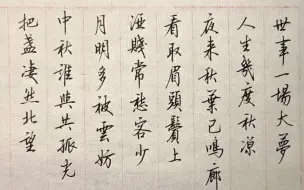 世事一場大夢
人生幾度秋涼
夜来秋葉已鳴廊
看取眉頭鬢上
酒賤常愁客少
月明多被雲妨
中秋誰與共孤光
把盞淒然北望